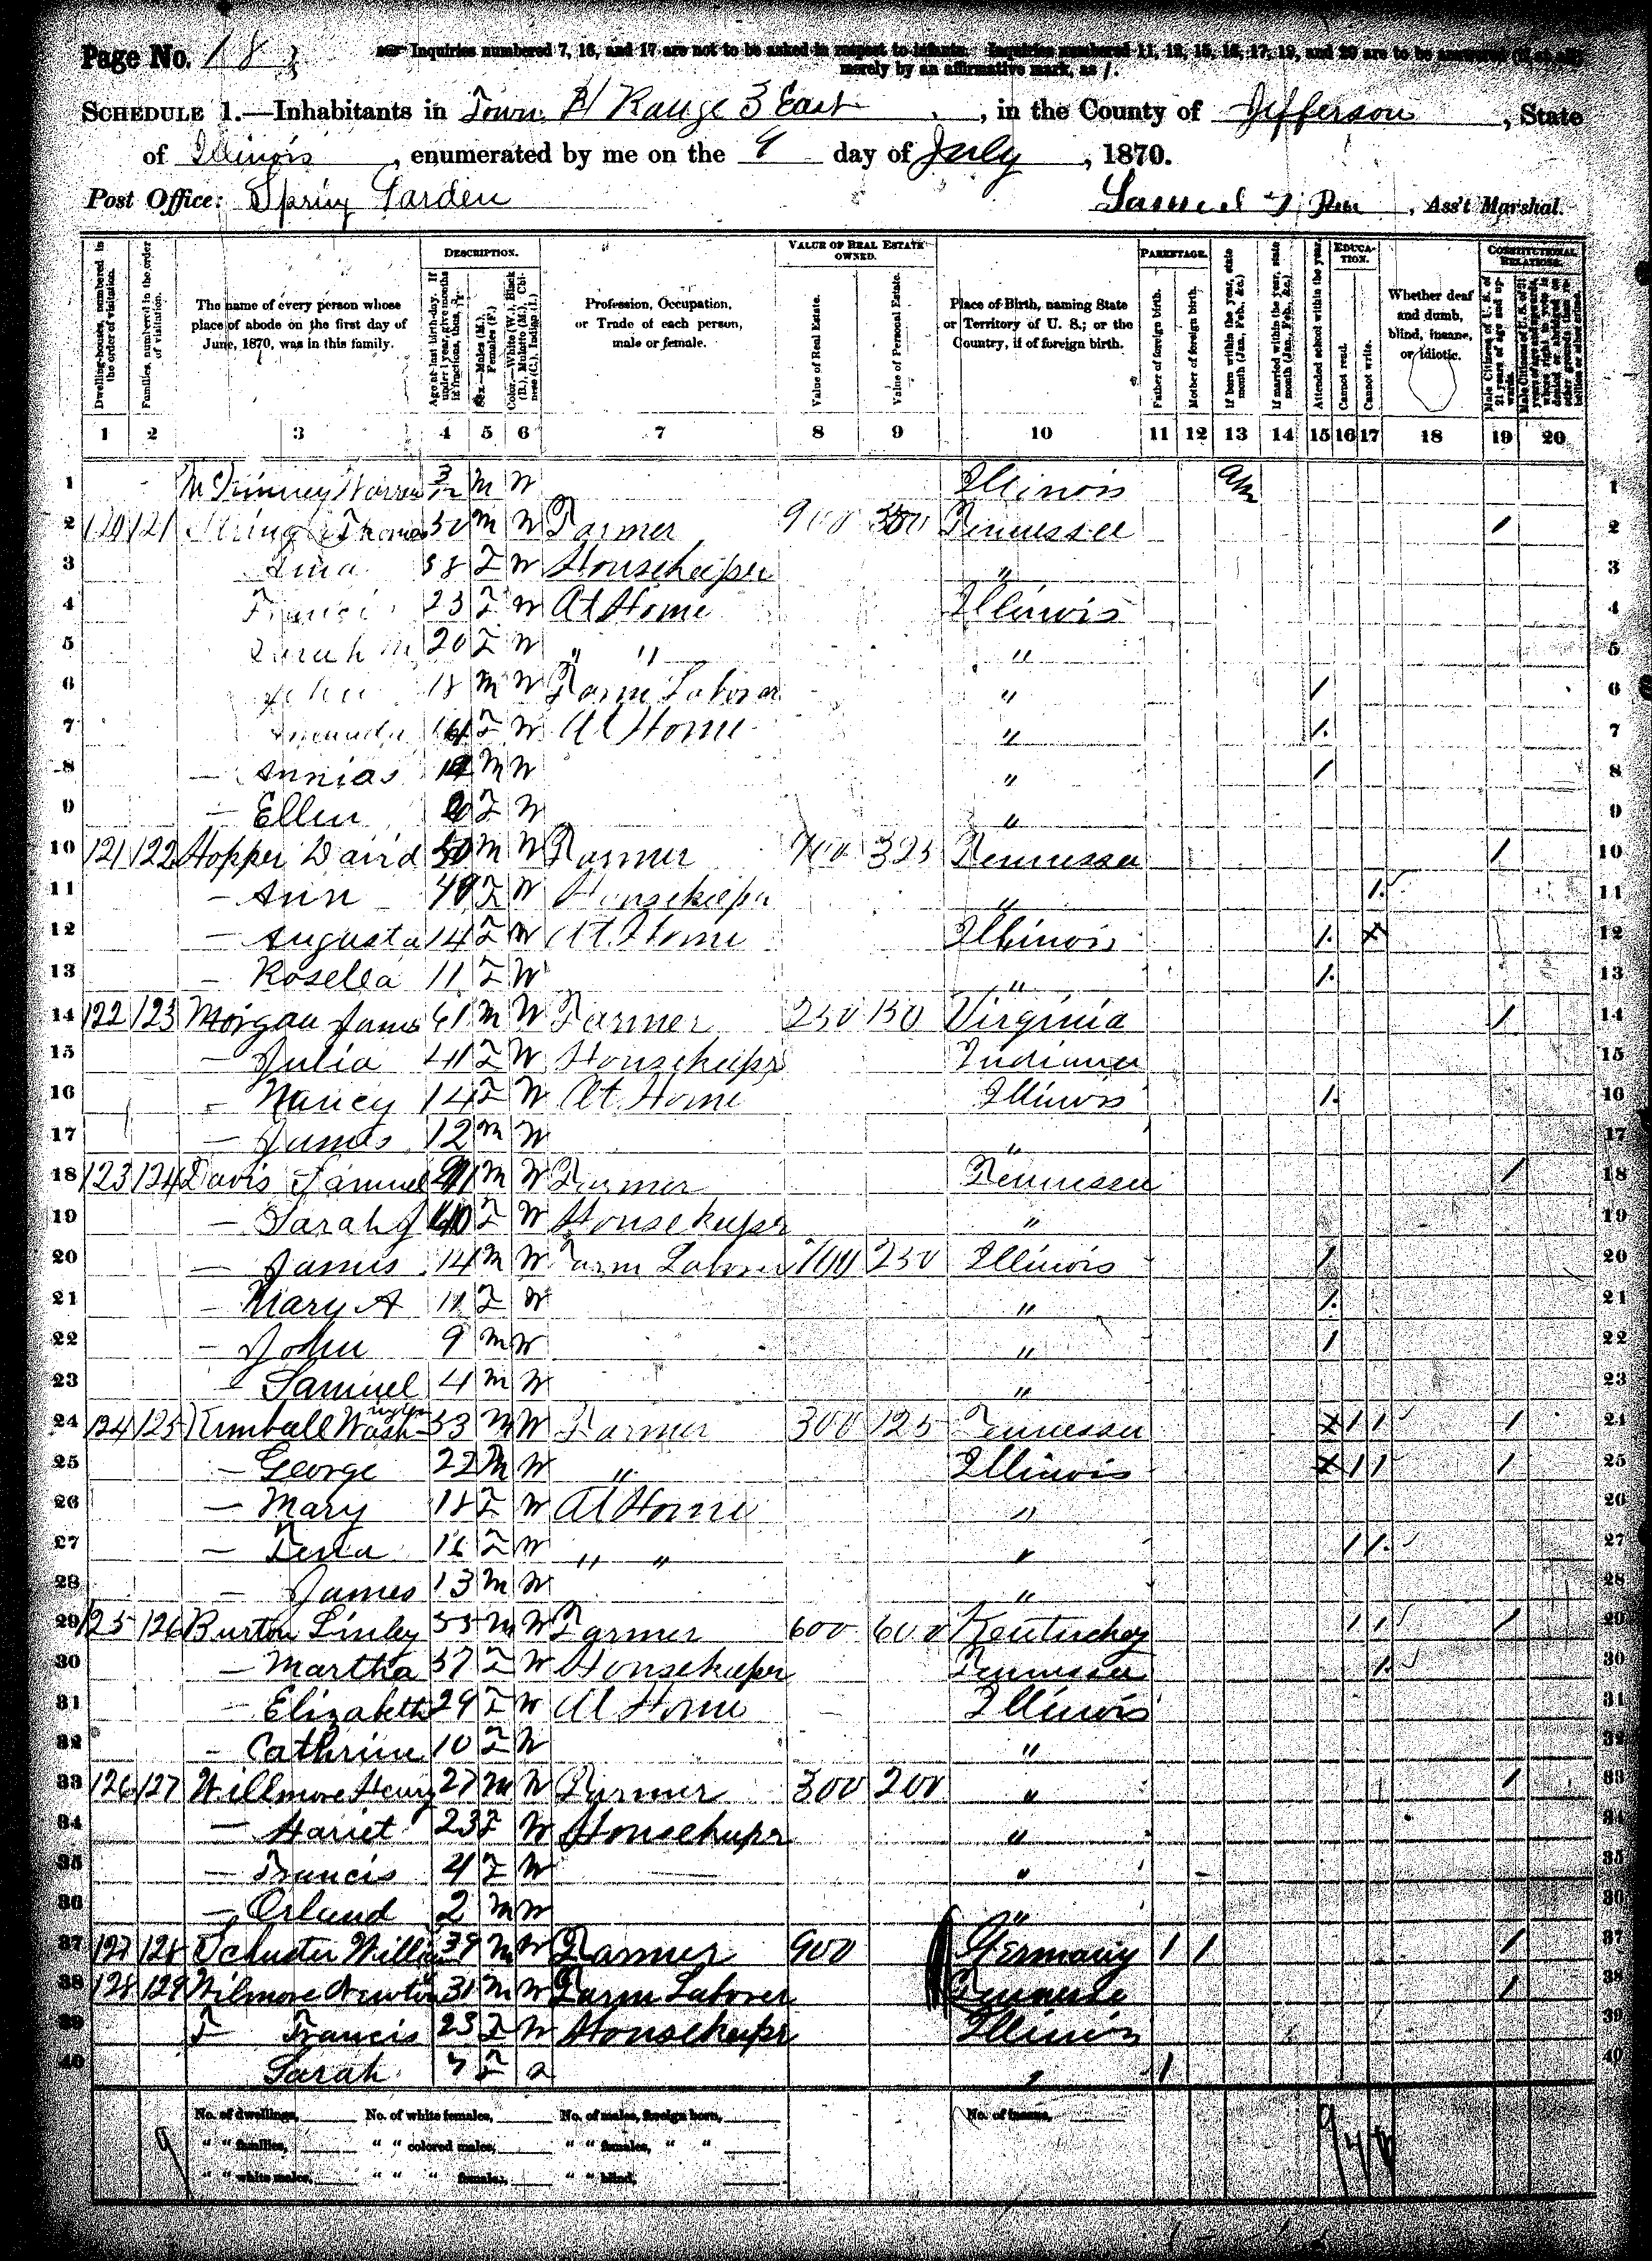 Page No. 18
Inquiries numbered 7, 16, and 17 are not to be asked in respect to infants. Inquiries numbered 11, 12, 15, 16, 17, 19, and 20 are to be answered
merely by an affirmative mark, as /.
SCHEDULE 1.—Inhabitants in Town Range 3 East, in the County of Jefferson, State
of Illinois, enumerated by me on the 9 day of July, 1870.
Post Office: Spring Garden Samuel, Ass't Marshal.
DESCRIPTION. VALUE OF REAL ESTATE OWNED. PARENTAGE. EDUCATION. CONSTITUTIONAL RELATIONS.
Dwelling-houses, numbered in the order of visitation.
Families, numbered in the order of visitation.
The name of every person whose place of abode on the first day of June, 1870, was in this family.
Age at last birth-day. If under 1 year, give months in fractions, thus,
Sex.—Males (M.), Females (F.)
Color.—White (W.), Black (B.), Mulatto (M.), Chinese (C.), Indian (I.)
Profession, Occupation, or Trade of each person, male or female.
Value of Real Estate.
Value of Personal Estate.
Place of Birth, naming State or Territory of U. S.; or the Country, if of foreign birth.
Father of foreign birth.
Mother of foreign birth.
If born within the year, state month (Jan., Feb., &c.)
If married within the year, state month (Jan., Feb., &c.)
Attended school within the year.
Cannot read.
Cannot write.
Whether deaf and dumb, blind, insane, or idiotic.
Male Citizens of U. S. of 21 years of age and upwards.
1 2 3 4 5 6 7 8 9 10 11 12 13 14 15 16 17 18 19 20
1 3/12 M W Illinois 1
2 120 121 Thomas 50 M W Farmer 900 Tennessee / 2
3 38 F W Housekeeper " 3
4 23 F W At Home Illinois 4
5 Sarah M 20 F W " " " 5
6 John 18 M W Farm Laborer " / 6
7 F W At Home " / 7
8 — Annias M W " / 8
9 — Ellen F W " 9
10 121 122 Hopper David 50 M W Farmer 700 325 Tennessee / 10
11 — Ann F W Housekeeper " / 11
12 — Augusta 14 F W At Home Illinois / x 12
13 — Rosella 11 F W " / 13
14 122 123 Morgan James 61 M W Farmer 250 150 Virginia / 14
15 — Julia 41 F W Housekeeper Indiana 15
16 — Nancy 14 F W At Home Illinois / 16
17 — James 12 M W " 17
18 123 124 Davis Samuel M W Farmer Tennessee / 18
19 — Sarah J 40 F W Housekeeper " 19
20 — James 14 M W Farm Laborer 700 250 Illinois / 20
21 — Mary A 11 F W " / 21
22 — John 9 M W " / 22
23 — Samuel 4 M W " 23
24 124 125 Kimball Washington 53 M W Farmer 300 125 Tennessee x / / / 24
25 — George 22 M W " Illinois x / / / 25
26 — Mary 18 F W At Home " 26
27 — 16 F W " " " / / 27
28 — James 13 M W " 28
29 125 126 Burton Linley 55 M W Farmer 600 600 Kentuckey / / / 29
30 — Martha 57 F W Housekeeper Tennessee / 30
31 — Elizabeth 29 F W At Home Illinois 31
32 — Cathrine 10 F W " 32
33 126 127 Willmore Henry 27 M W Farmer 300 200 " / 33
34 — Hariet 23 F W Housekeeper " 34
35 — Francis 4 F W " 35
36 — Orland 2 M W " 36
37 127 128 Schuster 39 M W Farmer 900 Germany / / / 37
38 128 129 Wilmore Newton 31 M W Farm Laborer Tennessee / 38
39 Francis 23 F W Housekeeper Illinois 39
40 Sarah 7 F " / 40
No. of dwellings, No. of white females, No. of males, foreign born, No. of insane,
9 " " families, " " colored males, " " females, " "
" " white males, " " " females, " " blind,